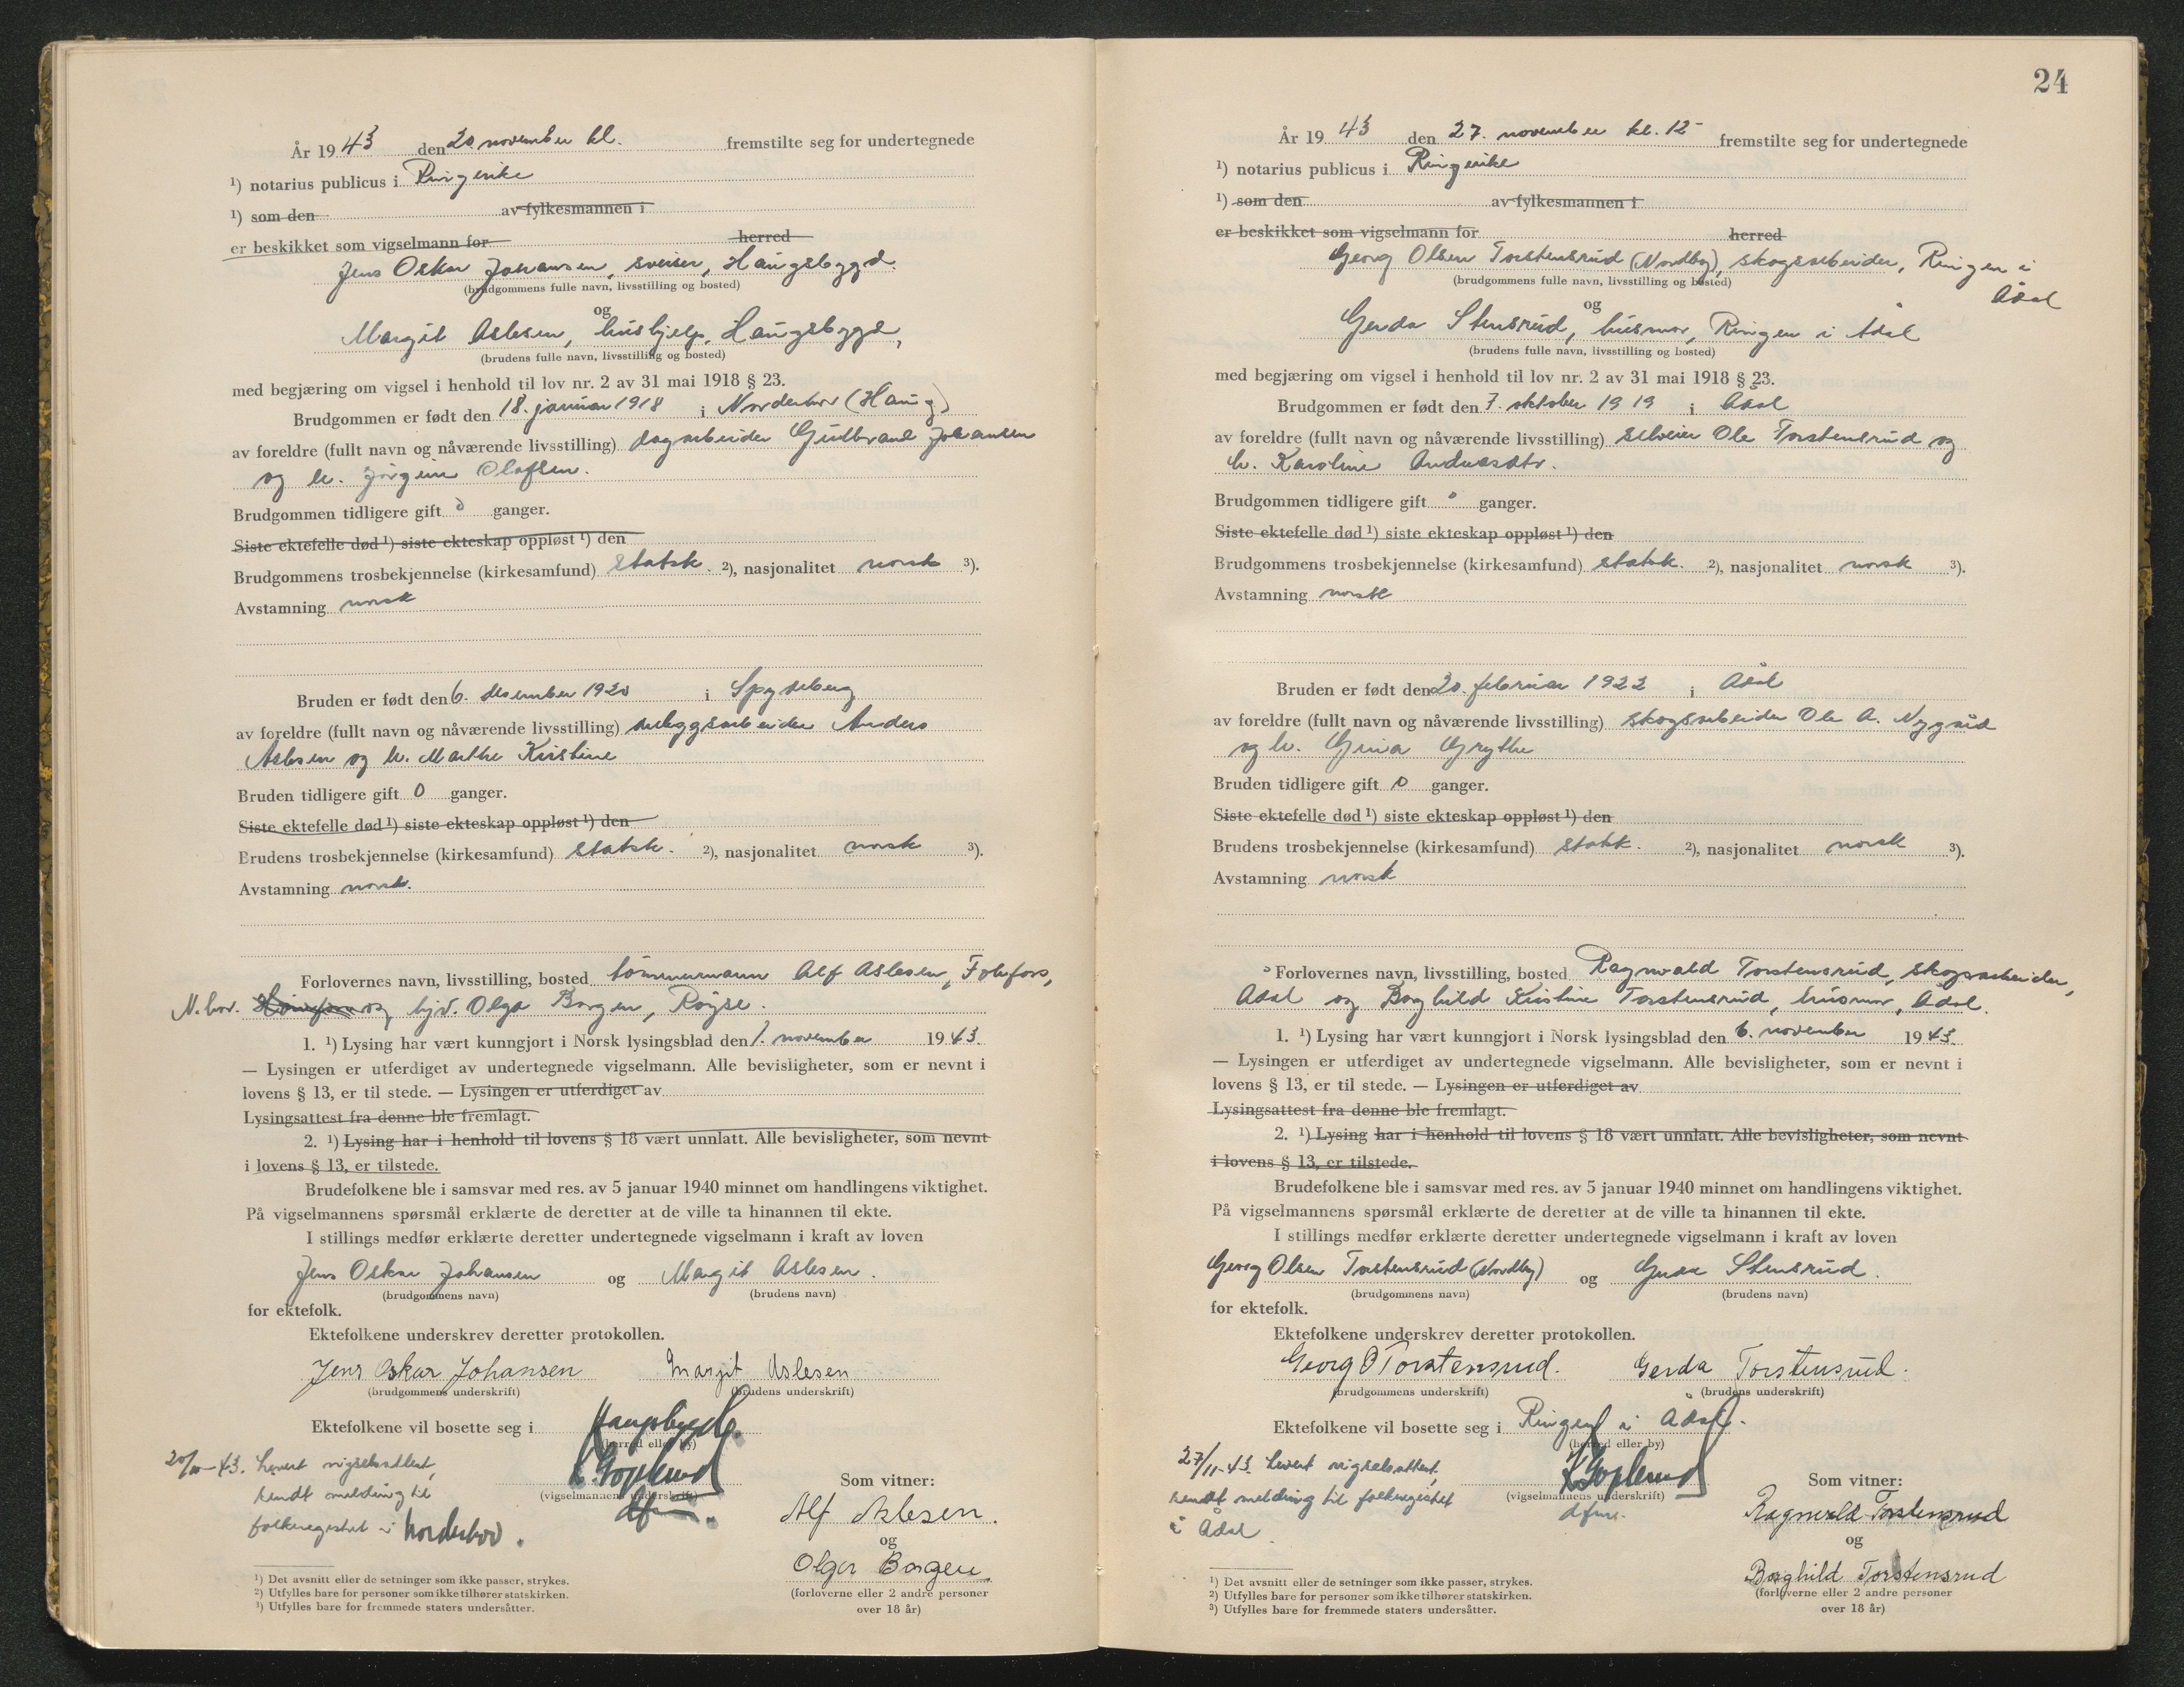 År 1943 den 20 november kl. fremstilte seg for undertegnede
¹) notarius publicus i Ringerike
¹) som den av fylkesmannen i
er beskikket som vigselmann for herred
Jens Oskar Johansen, sveiser, Haugsbygd.
(brudgommens fulle navn, livsstilling og bosted)
og
Margit Aslesen, hushjelp, Haugsbygd,
(brudens fulle navn, livsstilling og bosted)
med begjæring om vigsel i henhold til lov nr. 2 av 31 mai 1918 § 23.
Brudgommen er født den 18. januar 1918 i Norderhov (Haug)
av foreldre (fullt navn og nåværende livsstilling) dagarbeider Gudbrand Johansen
og h. Jørgine Olafsen.
Brudgommen tidligere gift 0 ganger.
Siste ektefelle død ¹) siste ekteskap oppløst ¹) den
Brudgommens trosbekjennelse (kirkesamfund) statsk. ²), nasjonalitet norsk ³).
Avstamning norsk
Bruden er født den 6. desember 1920 i Spydeberg
av foreldre (fullt navn og nåværende livsstilling) anleggsarbeider Anders
Aslesen og h. Marthe Kristine
Bruden tidligere gift 0 ganger.
Siste ektefelle død ¹) siste ekteskap oppløst ¹) den
Brudens trosbekjennelse (kirkesamfund) statsk. ²), nasjonalitet norsk ³).
Avstamning norsk.
Forlovernes navn, livsstilling, bosted tømmermann Alf Aslesen, Follufoss,
N.hov. Hønefoss og Olga Borgen, Røyse.
1. ¹) Lysing har vært kunngjort i Norsk lysingsblad den 1. november 1943.
— Lysingen er utferdiget av undertegnede vigselmann. Alle bevisligheter, som er nevnt i
lovens § 13, er til stede. — Lysingen er utferdiget av
Lysingsattest fra denne ble fremlagt.
2. ¹) Lysing har i henhold til lovens § 18 vært unnlatt. Alle bevisligheter, som nevnt
i lovens § 13, er tilstede.
Brudefolkene ble i samsvar med res. av 5 januar 1940 minnet om handlingens viktighet.
På vigselmannens spørsmål erklærte de deretter at de ville ta hinannen til ekte.
I stillings medfør erklærte deretter undertegnede vigselmann i kraft av loven
Jens Oskar Johansen og Margit Aslesen.
(brudgommens navn) (brudens navn)
for ektefolk.
Ektefolkene underskrev deretter protokollen.
Jens Oskar Johansen Margit Aslesen
(brudgommens underskrift) (brudens underskrift)
Ektefolkene vil bosette seg i Haugsbygd.
(herred eller by)
20/11-43. Levert vigselsattest,
sendt melding til
folkeregistret i Norderhov.
K. Goplerud
(vigselmannens underskrift)
dfm.
Som vitner:
Alf Aslesen.
og
Olga Borgen.
(forloverne eller 2 andre personer
over 18 år)
¹) Det avsnitt eller de setninger som ikke passer, strykes.
²) Utfylles bare for personer som ikke tilhører statskirken.
³) Utfylles bare for fremmede staters undersåtter.
24
År 1943 den 27. november kl. 12 fremstilte seg for undertegnede
¹) notarius publicus i Ringerike
¹) som den av fylkesmannen i
er beskikket som vigselmann for herred
Georg Olsen Torstensrud (Nordby), skogsarbeider, Ringen i
Ådal
(brudgommens fulle navn, livsstilling og bosted)
og
Gerda Stensrud, husmor, Ringen i Ådal
(brudens fulle navn, livsstilling og bosted)
med begjæring om vigsel i henhold til lov nr. 2 av 31 mai 1918 § 23.
Brudgommen er født den 7. oktober 1919 i Ådal
av foreldre (fullt navn og nåværende livsstilling) selveier Ole Torstensrud og
h. Karoline Andreasdtr.
Brudgommen tidligere gift 0 ganger.
Siste ektefelle død ¹) siste ekteskap oppløst ¹) den
Brudgommens trosbekjennelse (kirkesamfund) statsk. ²), nasjonalitet norsk ³).
Avstamning norsk
Bruden er født den 20. februar 1922 i Ådal
av foreldre (fullt navn og nåværende livsstilling) skogsarbeider Ole A. Nygård
og h. Gina Grythe
Bruden tidligere gift 0 ganger.
Siste ektefelle død ¹) siste ekteskap oppløst ¹) den
Brudens trosbekjennelse (kirkesamfund) statsk. ²), nasjonalitet norsk ³).
Avstamning norsk
Forlovernes navn, livsstilling, bosted Ragnvald Torstensrud, skogsarbeider,
Ådal og Borghild Kristine Torstensrud, husmor, Ådal.
1. ¹) Lysing har vært kunngjort i Norsk lysingsblad den 6. november 1943.
— Lysingen er utferdiget av undertegnede vigselmann. Alle bevisligheter, som er nevnt i
lovens § 13, er til stede. — Lysingen er utferdiget av
Lysingsattest fra denne ble fremlagt.
2. ¹) Lysing har i henhold til lovens § 18 vært unnlatt. Alle bevisligheter, som nevnt
i lovens § 13, er tilstede.
Brudefolkene ble i samsvar med res. av 5 januar 1940 minnet om handlingens viktighet.
På vigselmannens spørsmål erklærte de deretter at de ville ta hinannen til ekte.
I stillings medfør erklærte deretter undertegnede vigselmann i kraft av loven
Georg Olsen Torstensrud (Nordby) og Gerda Stensrud.
(brudgommens navn) (brudens navn)
for ektefolk.
Ektefolkene underskrev deretter protokollen.
Georg O Torstensrud. Gerda Torstensrud.
(brudgommens underskrift) (brudens underskrift)
Ektefolkene vil bosette seg i Ringen i Ådal.
(herred eller by)
27/11-43. Levert vigselsattest,
sendt melding til folkeregistret
i Ådal
K Goplerud
(vigselmannens underskrift)
dfm.
Som vitner:
Ragnvald Torstensrud
og
Borghild Torstensrud
(forloverne eller 2 andre personer
over 18 år)
¹) Det avsnitt eller de setninger som ikke passer, strykes.
²) Utfylles bare for personer som ikke tilhører statskirken.
³) Utfylles bare for fremmede staters undersåtter.